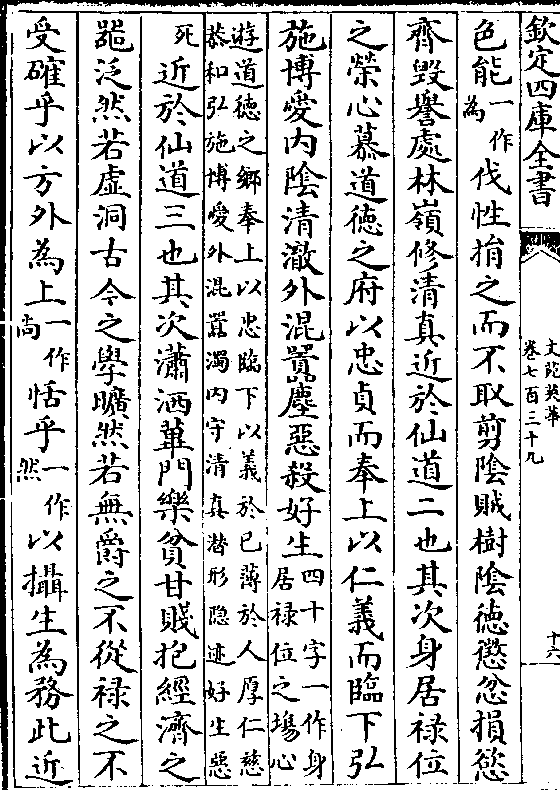 欽定四庫全書
文苑英華
卷七百三十九
十六
色能一作為伐性捐之而不取剪陰賊樹陰徳懲忿損慾
齊毁譽處林嶺修清真近於仙道二也其次身居禄位
之榮心慕道徳之府以忠貞而奉上以仁義而臨下弘
施博愛内隂清澈外混嚣塵惡殺好生四十字一作身居禄位之場心
遊道徳之鄉奉上以忠臨下以義於己薄於人厚仁慈
恭和弘施博愛外混嚣濁内守清真潜形隐迹好生惡
死近於仙道三也其次瀟洒蓽門樂貧甘賤抱經濟之
噐泛然若虚洞古今之學曠然若無爵之不從禄之不
受確乎以方外為上一作尚恬乎一作然以攝生為務此近